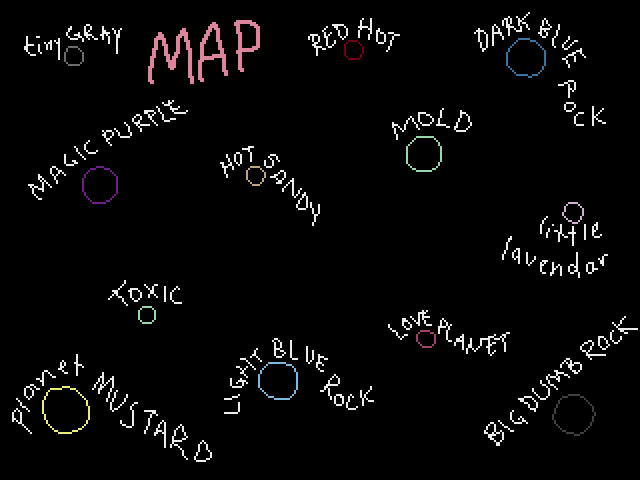 tiny GRAY
MAP
RED HOT
DARK BLUE ROCK
MAGIC PURPLE
HOT SANDY
MOLD
little
lavendar
TOXIC
LOVE PLANET
planet MUSTARD
LIGHT BLUE ROCK
BIG DUMB ROCK